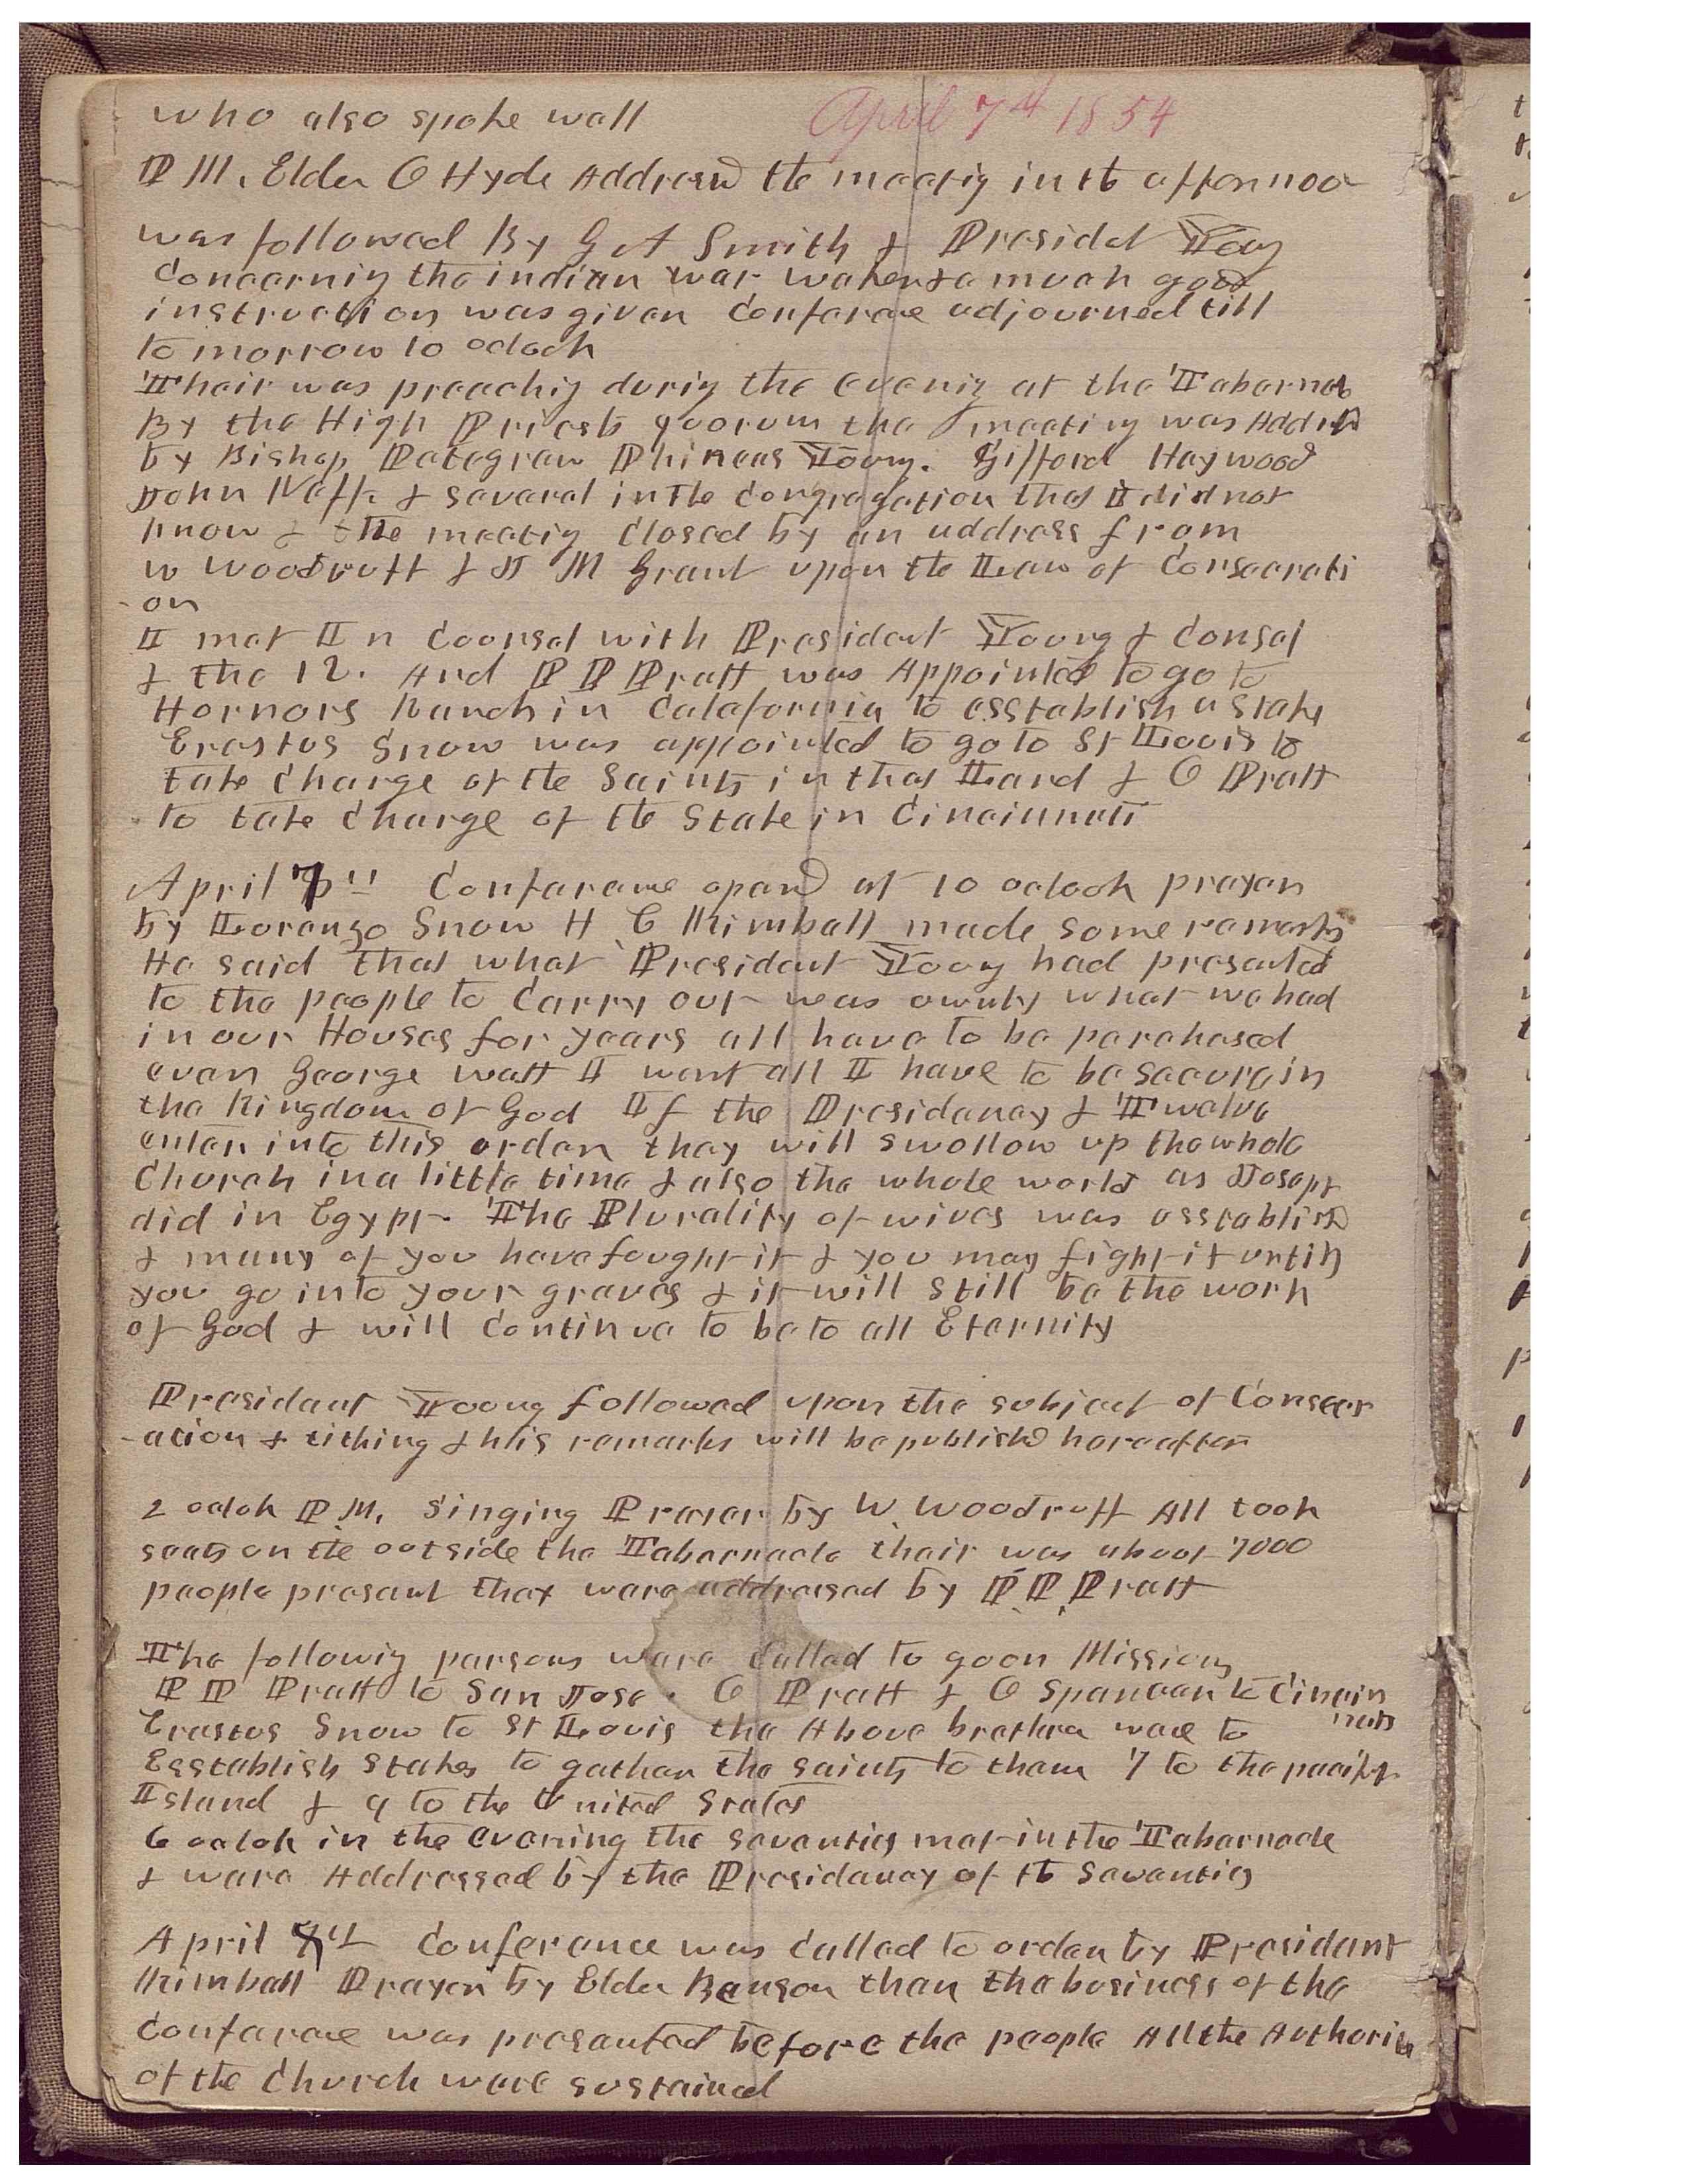 who also spoke well April 7th 1854
P M. Elder O Hyde Addressd the meetig in the afternoo
was followed By G A Smith & Presidet Youg
concernig the indian war waker & a much good
instruction was given Conferece adjourned till
to morrow 10 oclock
Their was preachig durig the evenig at the Tabernac
By the High Priests quorum the meetig was Addrsd
by Bishop Petegrew Phineas Youg. Gifford Haywood
John Neff & several in the congregation that I did not
know & the meetig closed by an address from
W Woodruff & J M Grant upon the Law of Consecrati
-on
I met I n Counsel with President Young & Consel
& the 12. And P P Pratt was Appointed to go to
Hornors Ranch in Calafornia to esstablish a Stake
Erastus Snow was appointed to go to St Louis to
take charge of the Saints in that Land & O Pratt
to take charge of the Stake in Cincinnati
April 7th Conferance opend at 10 oclock prayer
by Lorenzo Snow H C Kimball made some remarks
He said that what President Youg had presented
to the people to carry out was ownly what we had
in our Houses for years all have to be perchased
even George watt I want all I have to be secure in
the Kingdom of God If the Presidency & Twelve
enter into this order they will swollow up the whole
Church in a little time & also the whole world as Joseph
did in Egypt. The Plurality of wives was esstablishd
& many of you have fought it & you may fight it untill
you go into your graves & it will still be the work
of God & will continue to be to all Eternity
President Young followed upon the subject of Consecr
-ation & tithing & his remarks will be publishd hereafter
2 oclok P.M. Singing Prayer by W. Woodruff All took
seats on the outside the Tabernacle thair was about 7000
people present they were addressed by P. P. Pratt
The followig persons were Called to go on Missions
P P Pratt to San Jose. O Pratt & O Spencer to Cincin
nati
Erastus Snow to St Louis the Above brethren were to
Esstablish Stakes to gather the saints to them 7 to the pacific
Island & 9 to the United States
6 oclok in the evening the seventies met in the Tabernacle
& were Addressed by the Presidency of the Seventies
April 8th Conference was called to order by President
Kimball Prayer by Elder Benson then the business of the
Conferece was presented before the people All the Authorities
of the Church were sustained